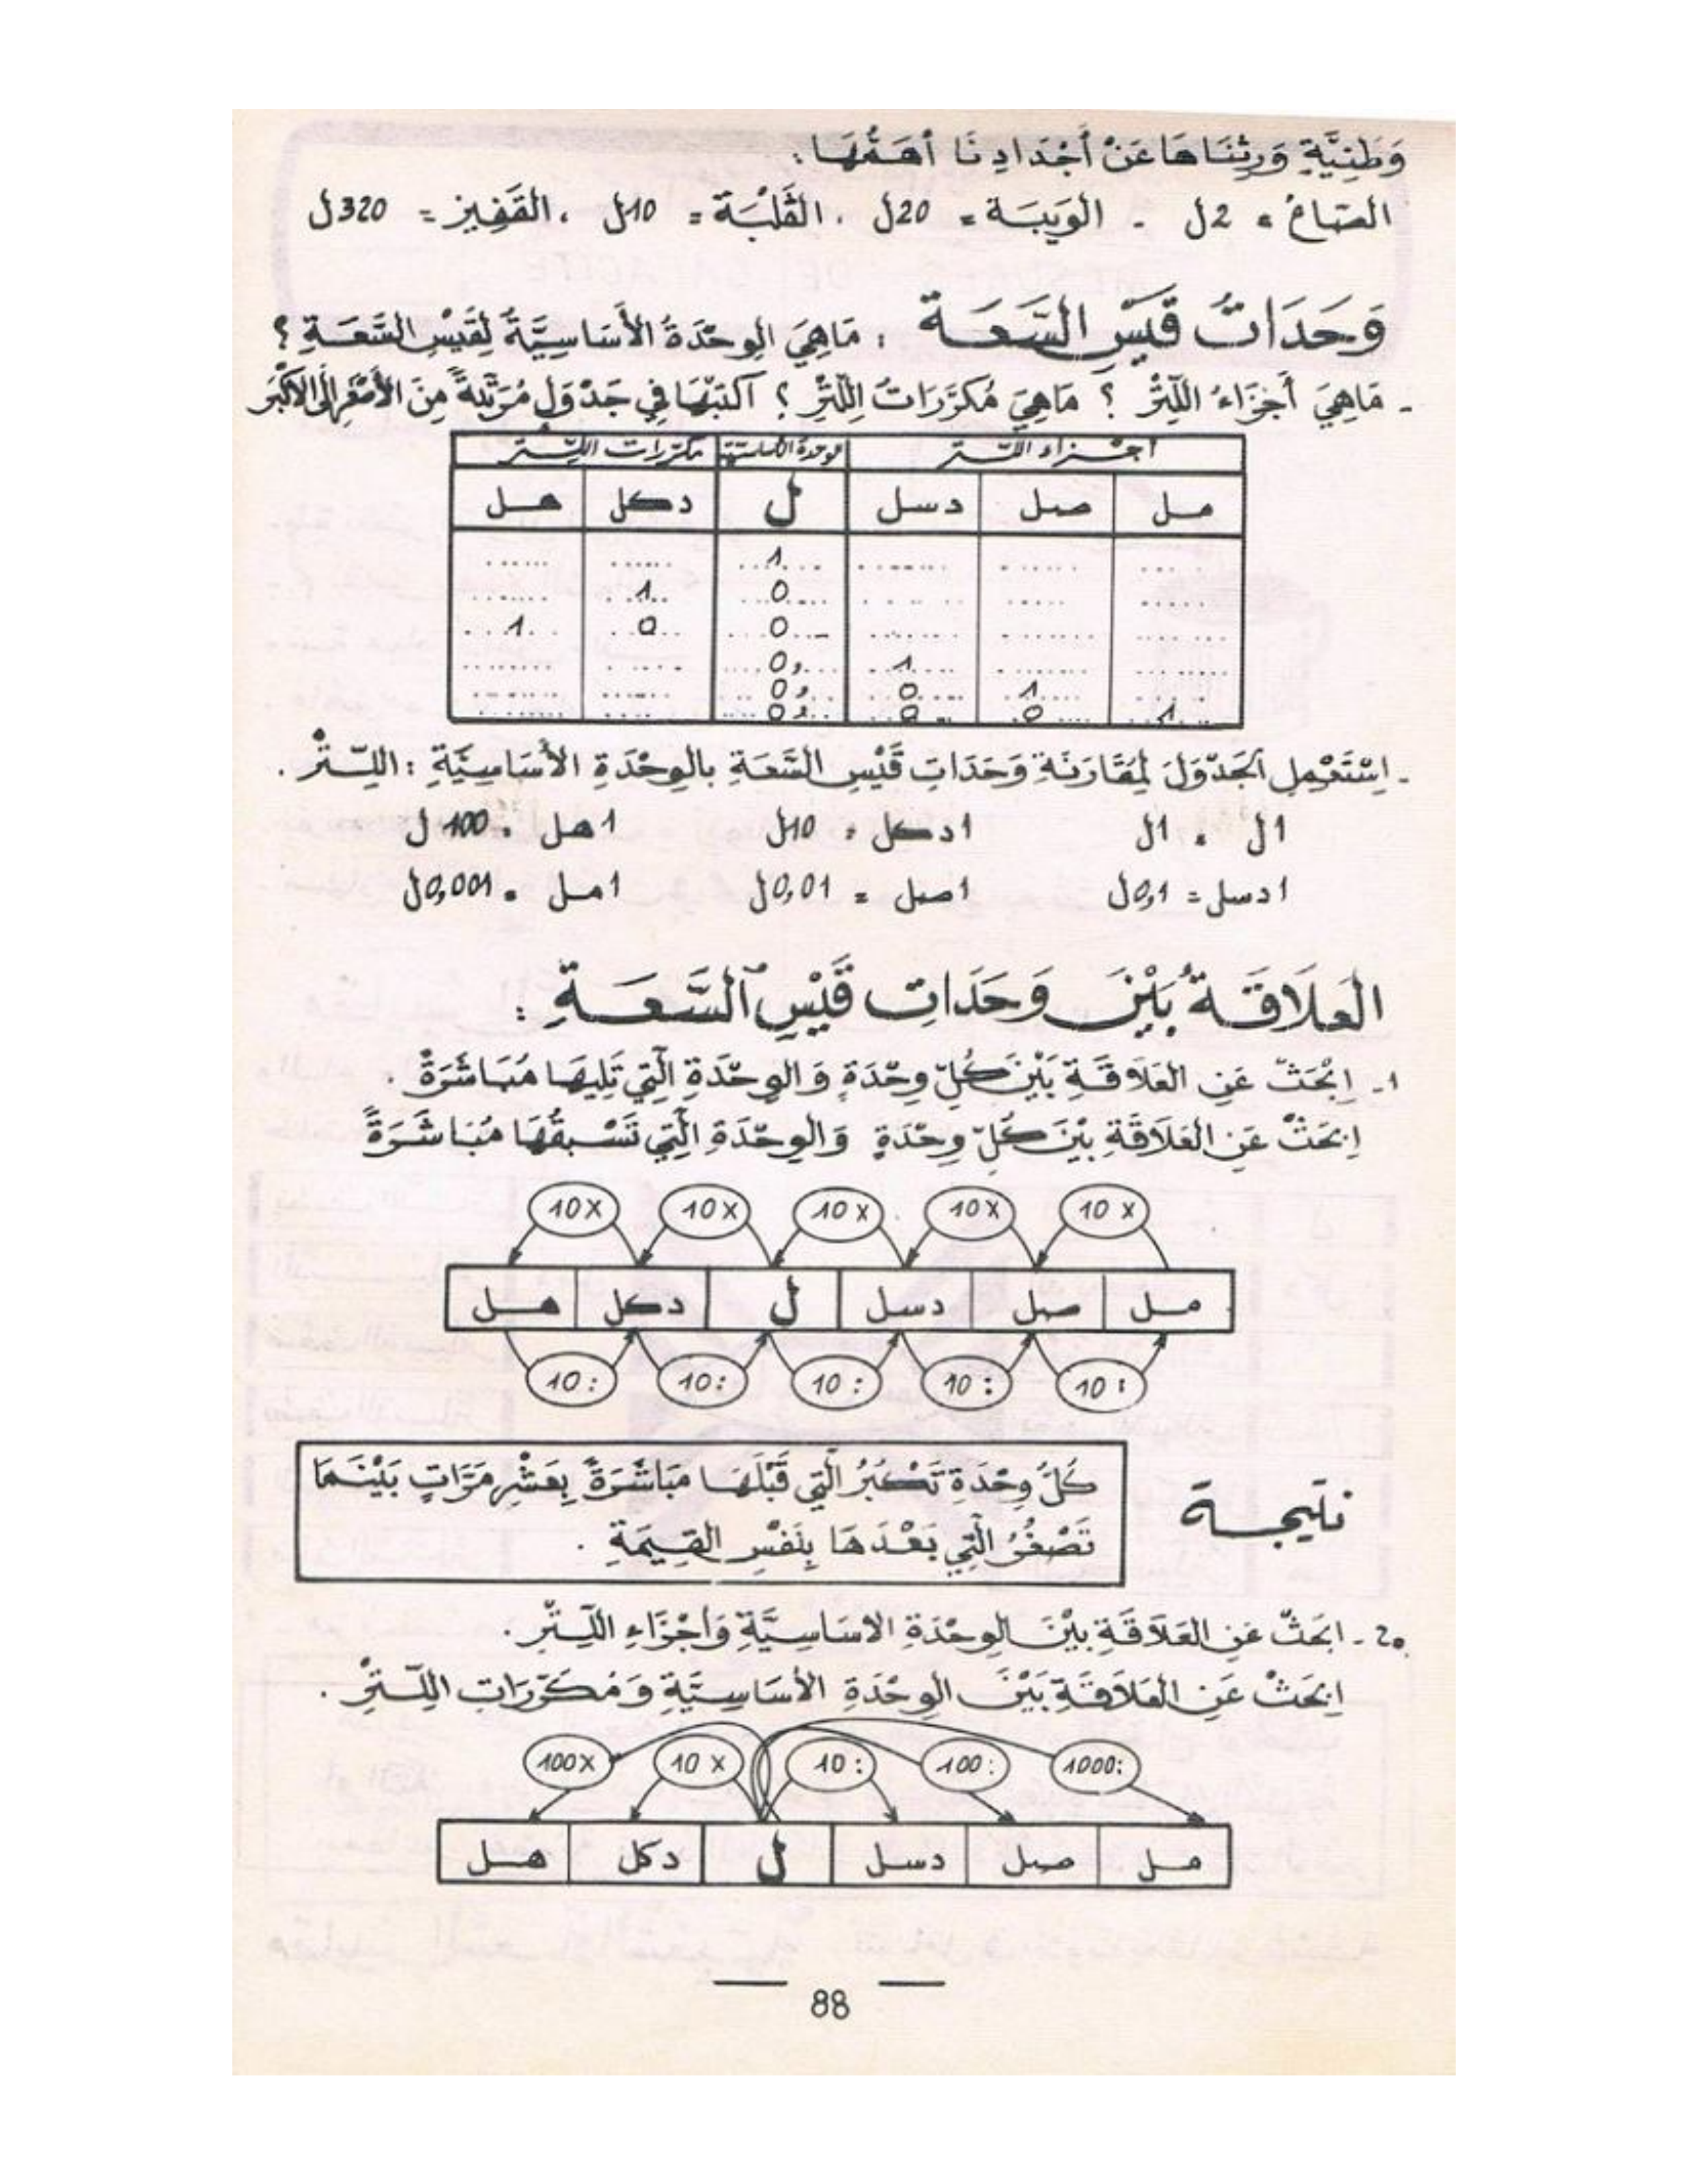 وَطَنِيَّةٍ وَرِثْنَاهَا عَنْ أَجْدَادِنَا أَهَمُّهَا:
الصَّاعُ = 2ل - الوَيبَة = 20ل ، القَلْبَة = 10ل ، القَفِيز = 320ل
وَحَدَاتُ قَيْسِ السَّعَةِ : مَاهِيَ الوِحْدَةُ الأَسَاسِيَّةُ لِقَيْسِ السَّعَةِ ؟
- مَاهِيَ أَجْزَاءُ اللِّتْرِ ؟ مَاهِيَ مُكَرَّرَاتُ اللِّتْرِ ؟ اكْتُبْهَا فِي جَدْوَلٍ مُرَتَّبَةً مِنَ الأَصْغَرِ إِلَى الأَكْبَرِ
أجزاء اللتر الوحدة الأساسية مكرّرات اللّتر
مل صل دسل ل دكل هل
1
0 1
0 0 1
1 0,
1 0 0,
1 0 0 0,
- اِسْتَعْمِلِ الجَدْوَلَ لِمُقَارَنَةِ وَحَدَاتِ قَيْسِ السَّعَةِ بِالوِحْدَةِ الأَسَاسِيَّةِ : اللِّتْرُ .
1ل = 1ل 1دكل = 10ل 1هل = 100ل
1دسل = 0,1ل 1صل = 0,01ل 1مل = 0,001ل
العَلَاقَةُ بَيْنَ وَحَدَاتِ قَيْسِ السَّعَةِ :
1- اِبْحَثْ عَنِ العَلَاقَةِ بَيْنَ كُلِّ وِحْدَةٍ وَالوِحْدَةِ الَّتِي تَلِيهَا مُبَاشَرَةً .
اِبْحَثْ عَنِ العَلَاقَةِ بَيْنَ كُلِّ وِحْدَةٍ وَالوِحْدَةِ الَّتِي تَسْبِقُهَا مُبَاشَرَةً
10× 10× 10× 10× 10×
مل صل دسل ل دكل هل
10: 10: 10: 10: 10:
نتيجة
كُلُّ وِحْدَةٍ تَكْبُرُ الَّتِي قَبْلَهَا مُبَاشَرَةً بِعَشْرِ مَرَّاتٍ بَيْنَمَا
تَصْغُرُ الَّتِي بَعْدَهَا بِنَفْسِ القِيمَةِ .
2 - ابْحَثْ عَنِ العَلَاقَةِ بَيْنَ الوِحْدَةِ الاسَاسِيَّةِ وَأَجْزَاءِ اللِّتْرِ .
اِبْحَثْ عَنِ العَلَاقَةِ بَيْنَ الوِحْدَةِ الأَسَاسِيَّةِ وَمُكَرَّرَاتِ اللِّتْرِ .
1000: 100: 10: 10× 100×
مل صل دسل ل دكل هل
88